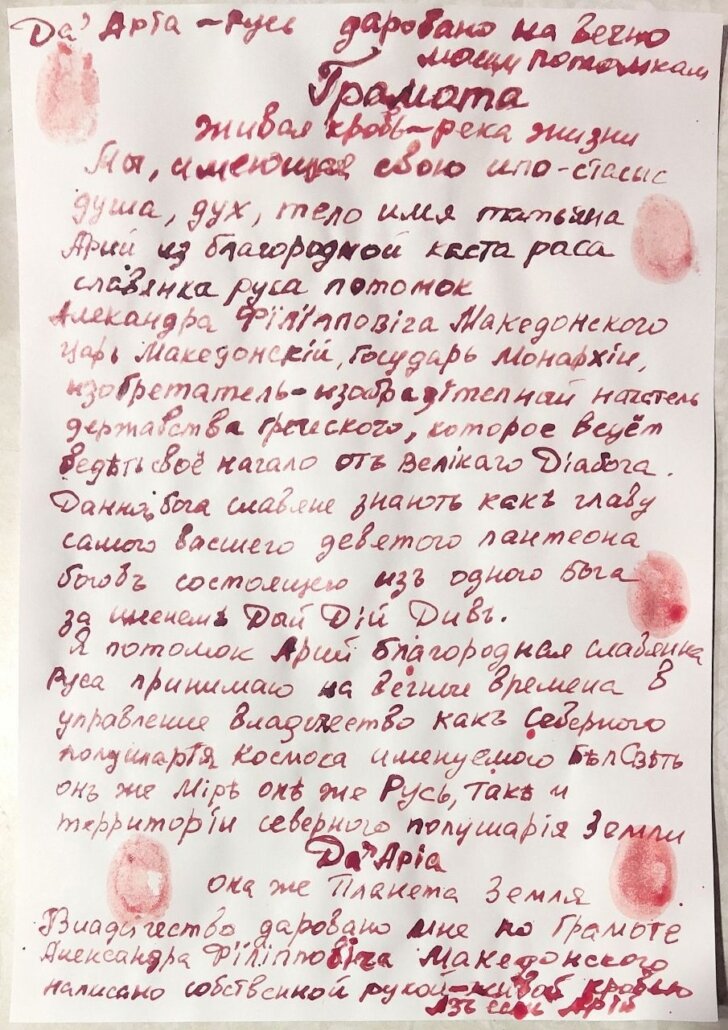 Да' Арiа – Русь даровано на вечно
моим потомкам
Грамота
живая кровь – река жизни
Мы, имеющая свою ипо-стасис
душа, дух, тело имя татьяна
Арий из благородной каста раса
славянка руса потомок
Алекандра Фiлiпповiча Македонского
царь Македонскiй, государь Монархiи,
изобретатель-изобрадiтелный начатель
державства грческого, которое ведёт
ведѣть своё начало отъ Велiкаго Дiабога.
Данной бога славяне знають какъ главу
самого васшего деветого пантеона
боговъ состоящего изъ одного бога
за именемъ Дый Дiй Дивъ.
Я потомок Арий благородная славянка
Руса принимаю на вечные времена в
управление владычество какъ Северного
полушарiя Космоса именуемого БѣлСвѣть
онъ же Мiръ онъ же Русь, такъ и
территорiи северного полушарiя Земли
Да" Арiа
она же Планета Земля
Владычество даровано мне по Грамоте
Александра Фiлiпповiча Македонского
написано собственной рукой – живой кровью
Азъ есмь Арiй